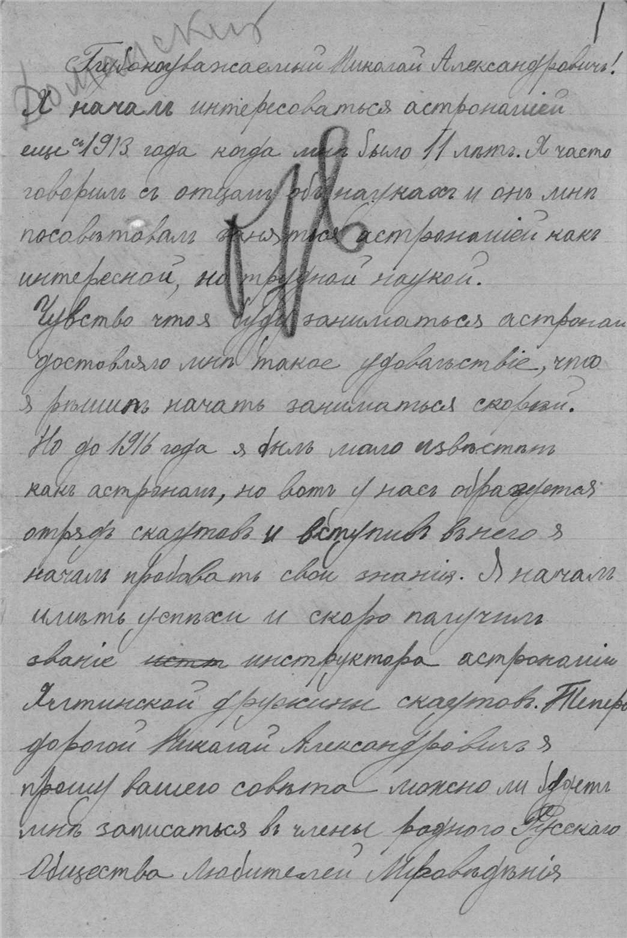 Доманскій
1
Глубокоуважаемый Николай Александровичъ!
Я началъ интересоваться астрономіей
еще съ 1913 года когда мнѣ было 11 лѣтъ. Я часто
говорилъ съ отцомъ объ наукахъ и онъ мнѣ
посовѣтовалъ заняться астрономіей какъ
интересной, но трудной наукой.
Чувство что я буду заниматься астроном
доставляло мнѣ такое удовольствіе, что
я рѣшилъ начать заниматься скорѣй.
Но до 1916 года я былъ мало извѣстенъ
какъ астрономъ, но вотъ у насъ образуется
отрядъ скаутовъ и вступивъ въ него я
началъ пробовать свои знанія. Я началъ
имѣть успѣхи и скоро получилъ
званіе инструктора астрономіи
Ялтинской дружины скаутовъ. Теперь
дорогой Николай Александровичъ я
прошу вашего совѣта можно ли будетъ
мнѣ записаться въ члены родного Русскаго
Общества Любителей Міровѣдѣнія